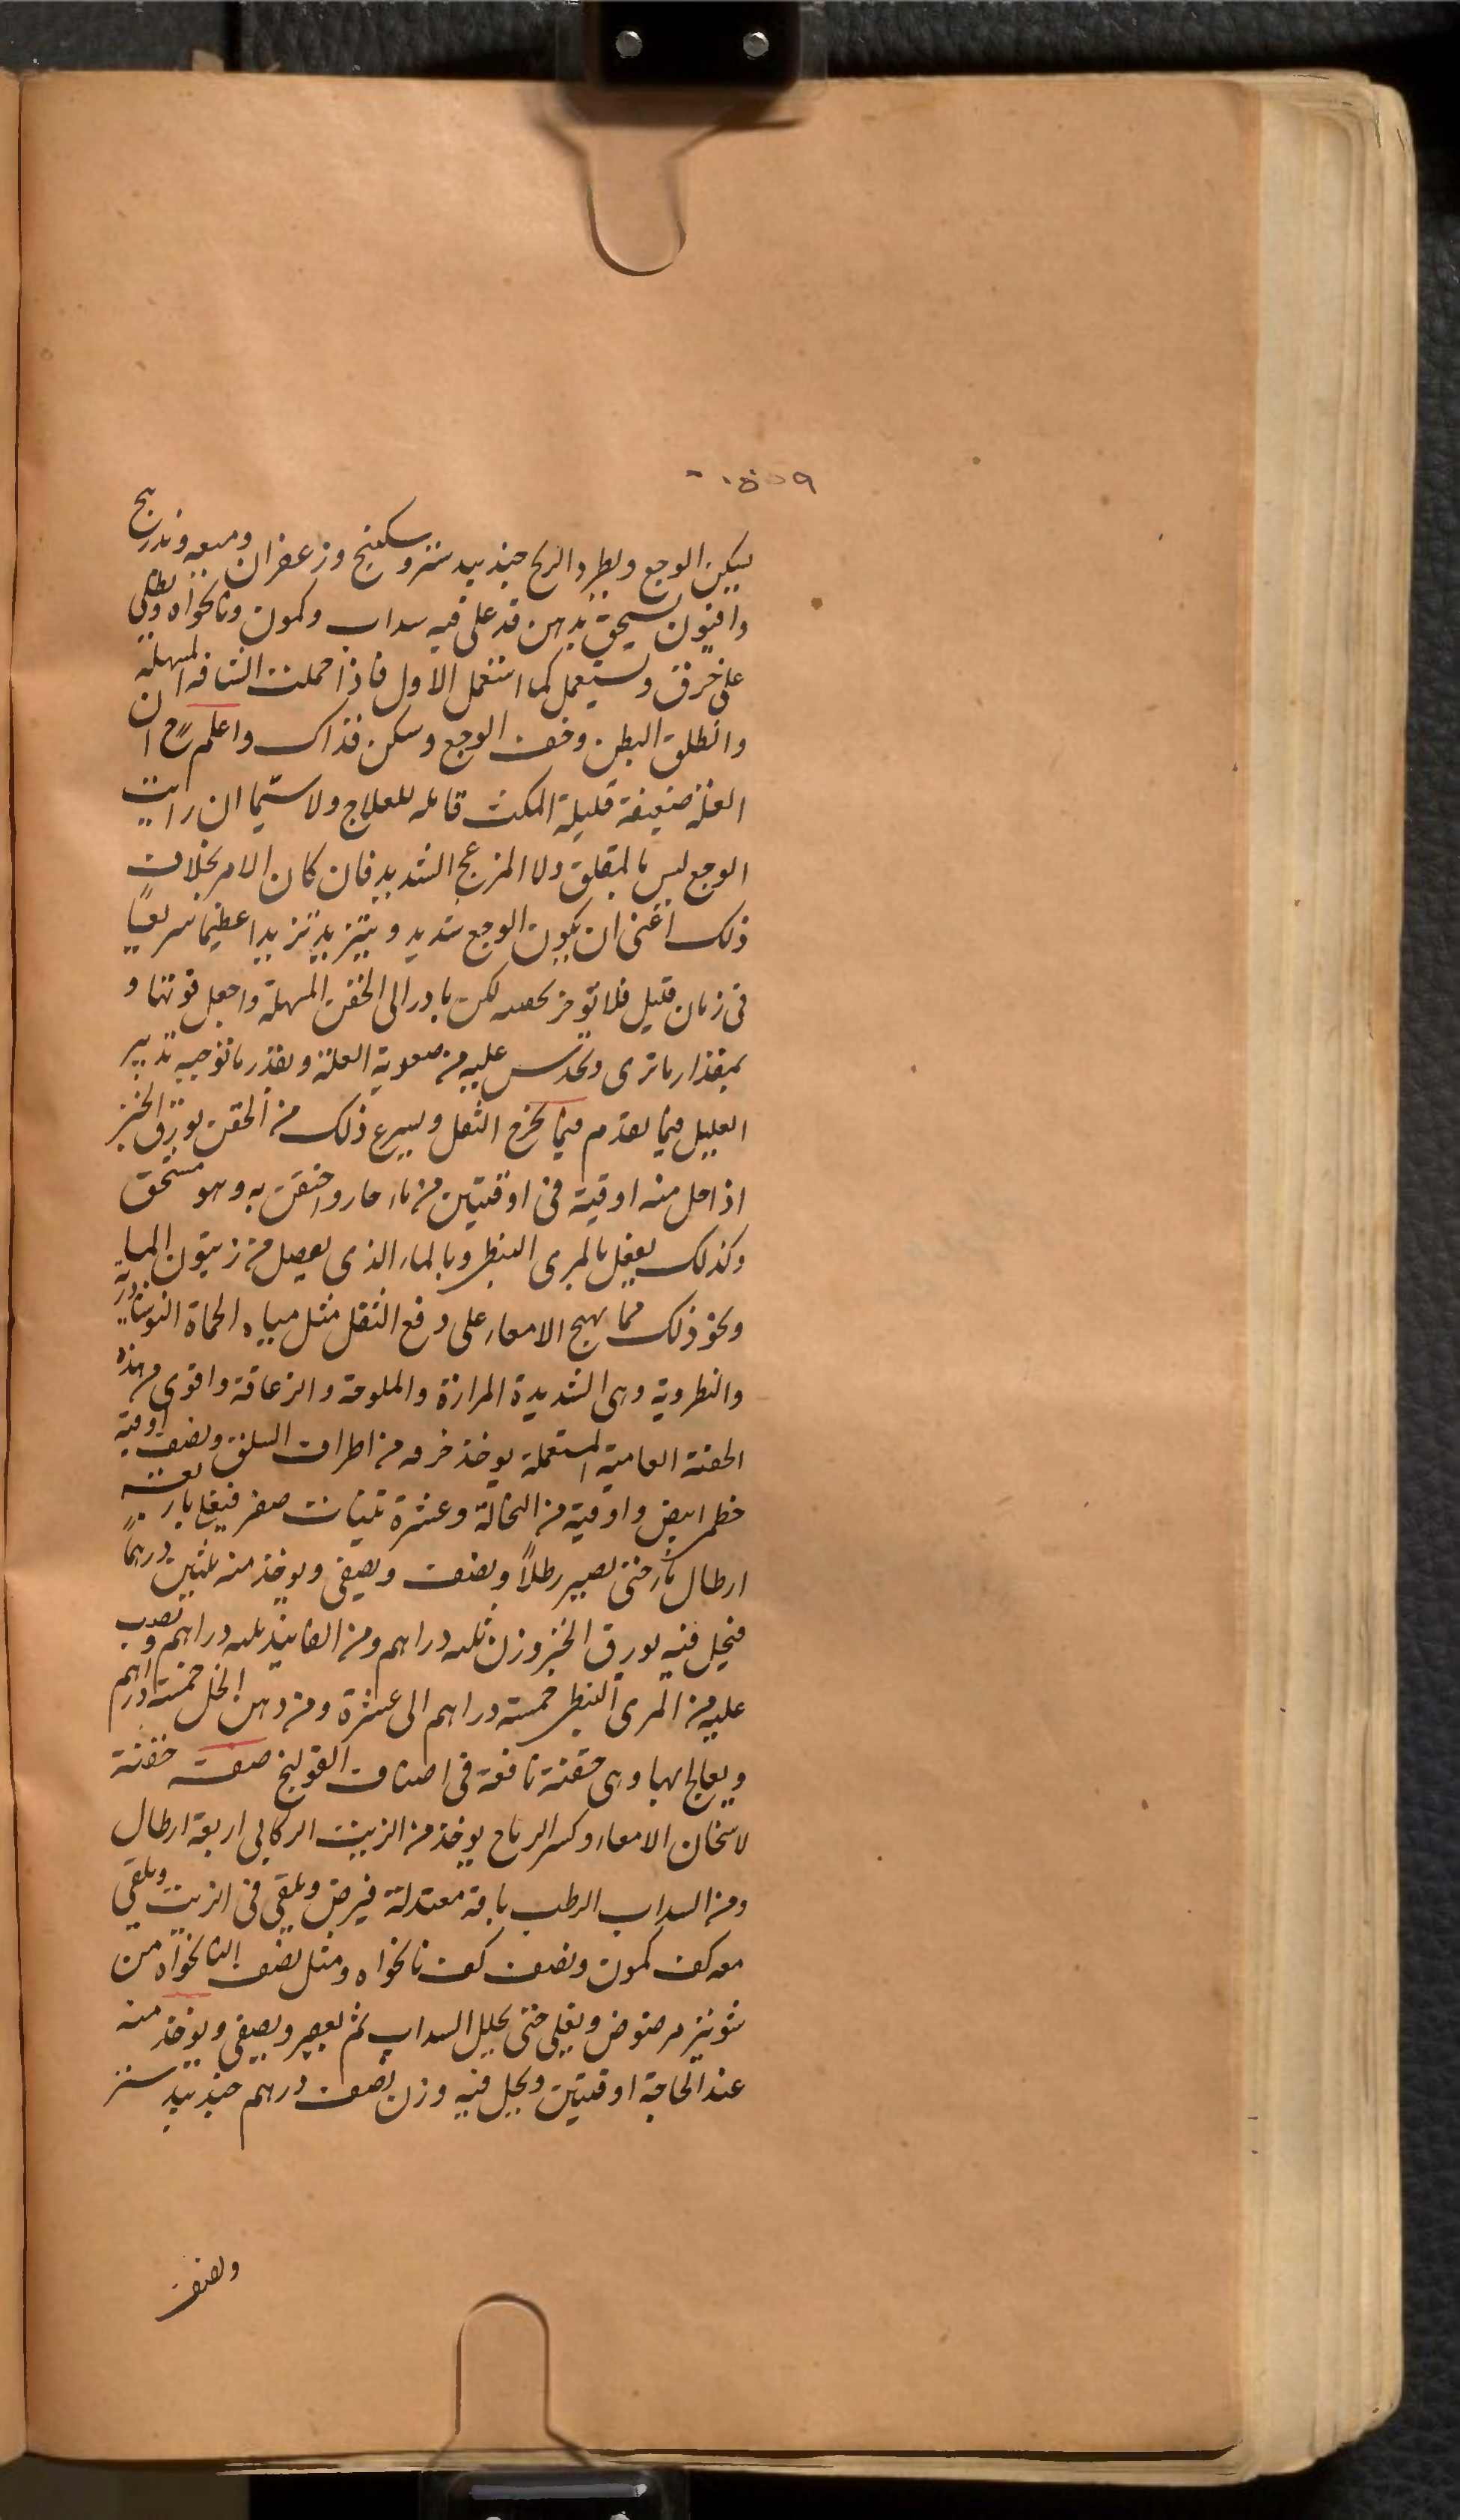 ١٥٥٩
يسكن الوجع ويطرد الريح جندبيدستر وسكبينج وزعفران وميعه وزرنيخ
وافيون يسحق بدهن قد غلى فيه سداب وكمون ونانخواه ويطلى
على خرق ويستعمل كما استعمل الاول فاذا حملت الشافه المسهلة
وانطلق البطن وخف الوجع وسكن فذاك واعلم ان
العلة ضعيفة قليلة المكث قابله للعلاج ولا سيّما ان رايت
الوجع ليس بالمقلق ولا المزعج الشديد فان كان الامر بخلاف
ذلك اعنى ان يكون الوجع شديد ويتزيد تزيدا عظيما سريعًا
فى زمان قليل فلا توخر لكن بادر الى الحقن المسهلة واجعل قوتها و
بمقدار ما ترى وتحدس عليه من صعوبة العلة وبقدر ما توجبه تدبير
العليل فيما تقدم فيما يخرج الثفل ويسرع ذلك من الحقن بورق الخبز
اذا حل منه اوقية فى اوقيتين من ماء حار واحتقن به وهو مستحق
وكذلك يفعل بالمرى النبطى وبالماء الذى يعمل من زيتون الماء
ونحو ذلك مما يهيج الامعاء على دفع الثفل مثل مياه الحماة النوشادرية
والنطروية وهى الشديدة المرارة والملوحة والزعاقة واقوى من هذه
الحقنة العامية المستعملة يوخذ من اطراف السلق ونصف اوقية
خطمى ابيض واوقية من النخالة وعشرة تينات صفر فيغلى باربعة
ارطال ماء حتى يصير رطلاً ونصف ويصفى ويوخذ منه ثلثين درهمًا
فيحل فيه بورق الخبز وزن ثلثه دراهم ومن الفانيذ ثلثه دراهم وتصب
عليه من المرى النبطى خمسة دراهم الى عشرة ومن دهن الخل خمسة دراهم
ويعالج بها وهى حقنة نافعة فى اصناف القولنج صفت حقنة
لاسخان الامعاء وكسر الرياح يوخذ من الزيت الركابى اربعة ارطال
ومن السداب الرطب باقة معتدلة فيرض ويلقى فى الزيت ويلقى
معه كف كمون ونصف كف نانخواه ومثل نصف النانخواه من
شونيز مرضوض ويغلى حتى يحلل السداب ثم يعصر ويصفى ويوخذ منه
عند الحاجة اوقيتين ويحل فيه وزن نصف درهم جندبيدستر
ونصف